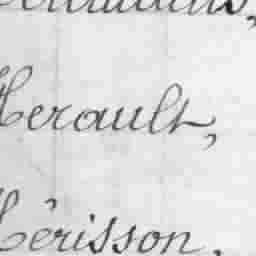 Herault,
Hérisson,